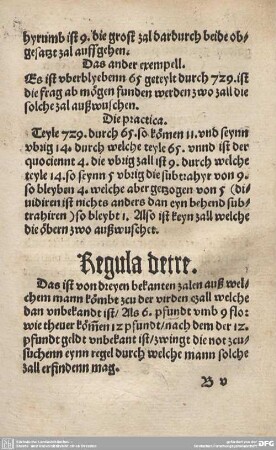 hyrumb ist 9. die grost zal dardurch beide ob-
gesatzt zal auffgehen.
Das ander exempell.
Es ist vberblyebenn 65 geteylt durch 729. ist
die frag ab mögen funden werden zwo zall die
solche zal außwuschen.
Die practica.
Teyle 729. durch 65. so kömen 11. vnd seynn
vbrig 14. durch welche teyle 65. vnnd ist der
quocient 4. die vbrig zall ist 9. durch welche
teyle 14. so seynn 5 vbrig die subtrahyr von 9.
so bleyben 4. welche aber getzogen von 5 (di-
uidiren ist nichts anders dan eyn behend sub-
trahiren) so bleybt 1. Also ist keyn zall welche
die öbern zwo außwuscher.
Regula detre.
Das ist von dreyen bekanten zalen auß wel-
chem mann kömbt zcu der virden czall welche
dan vnbekandt ist/ Als 6. pfundt vmb 9 flo:
wie theuer köm̃en 12 pfundt/ nach dem der 12.
pfundt geldt vnbekant ist/ zwingt die not zcu-
suchenn eynn regel durch welche mann solche
zall erfindenn mag.
B v
DFG